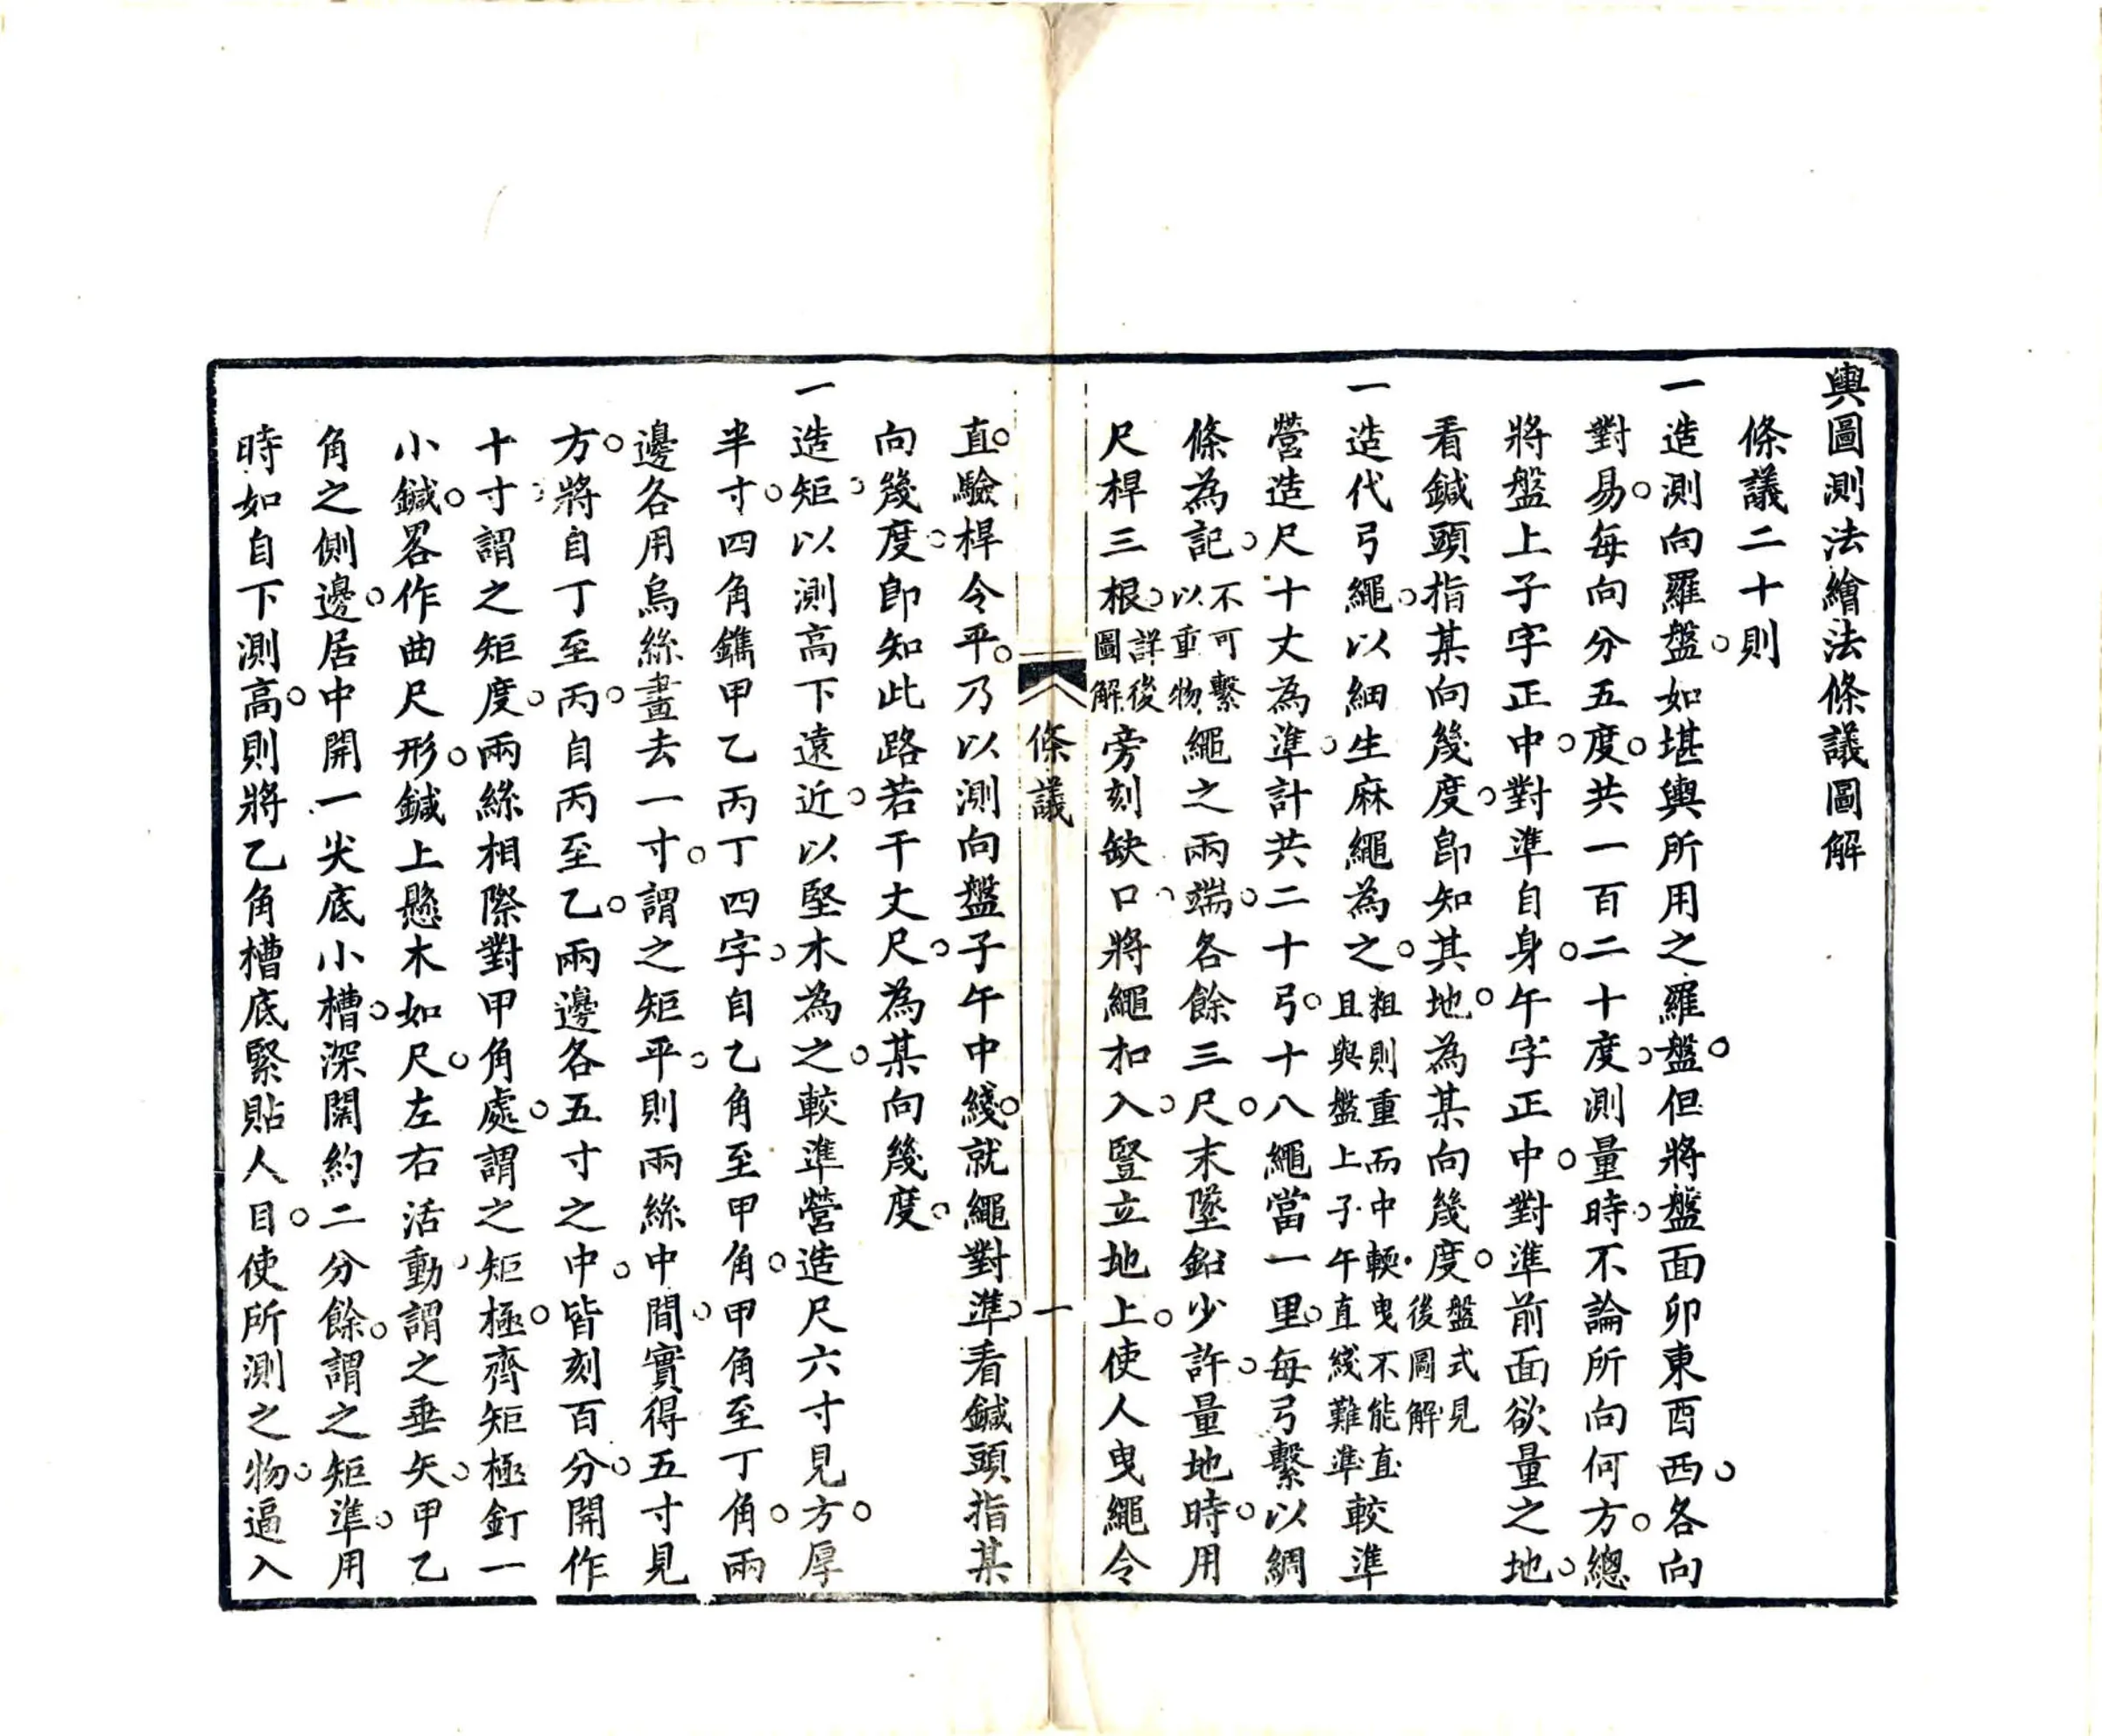 輿圖測法繪法條議圖解
條議二十則
一造測向羅盤。如堪輿所用之羅盤。但將盤面卯東酉西。各向
對易。每向分五度。共一百二十度。測量時。不論所向何方。總
將盤上子字正中。對準自身。午字正中。對準前面欲量之地。
看鍼頭指某向幾度。卽知其地。為某向幾度。盤式見後圖解
一造代弓繩。以細生麻繩為之。粗則重而中輭。曳不能直且與盤上子午直綫難準較準
營造尺十丈為準。計共二十弓。十八繩當一里。每弓繫以綢
條為記。不可繫以重物繩之兩端。各餘三尺。末墜鉛少許。量地時。用
尺桿三根。詳後圖解旁刻缺口。將繩扣入。豎立地上。使人曳繩令
條議 一
直。驗桿令平。乃以測向盤子午中綫。就繩對準。看鍼頭指某
向幾度。卽知此路若干丈尺。為某向幾度。
一造矩。以測高下遠近。以堅木為之。較準營造尺六寸見方。厚
半寸。四角鐫甲乙丙丁四字。自乙角至甲角。甲角至丁角。兩
邊各用烏絲畫去一寸。謂之矩平。則兩絲中間。實得五寸見
方。將自丁至丙。自丙至乙。兩邊各五寸之中。皆刻百分。開作
十寸。謂之矩度。兩絲相際對甲角處。謂之矩極。齊矩極釘一
小鍼。畧作曲尺形。鍼上懸木如尺。左右活動。謂之垂矢。甲乙
角之側邊。居中開一尖底小槽。深闊約二分餘。謂之矩準。用
時如自下測高。則將乙角槽底緊貼人目。使所測之物。逼入